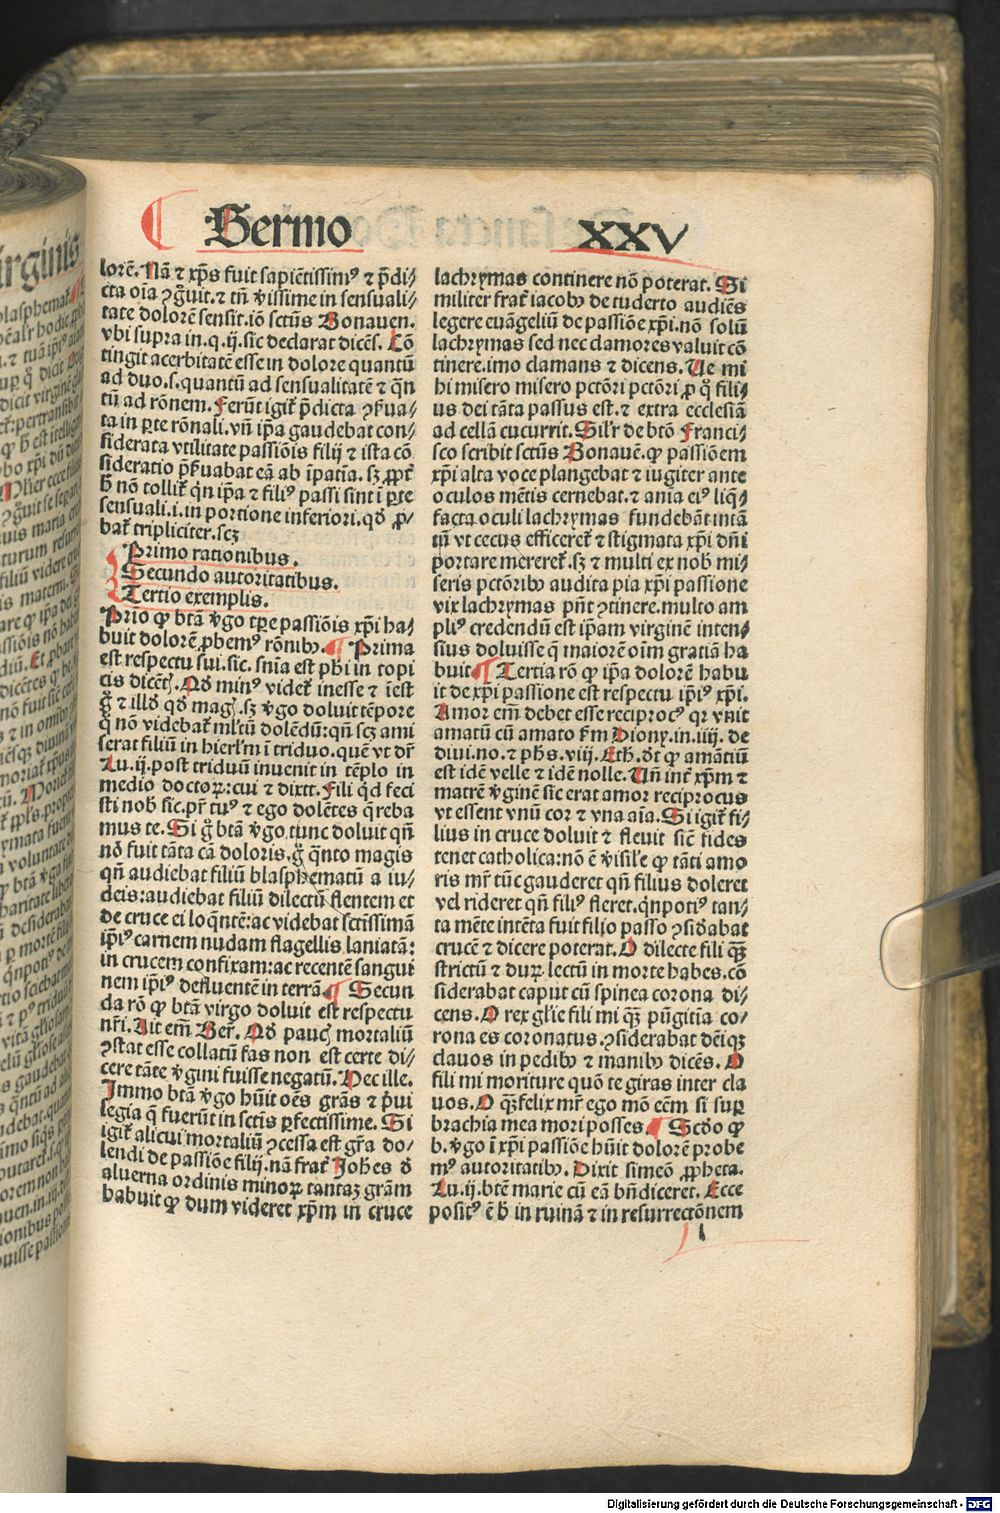 Sermo XXV
lorē. Nā ⁊ xp̄s fuit sapiētissimꝰ ⁊ p̄di/
cta oīa ꝯg̃uit. ⁊ tn̄ v̄issime in sensuali/
tate dolorē sensit. iō sctūs Bonauen.
vbi supra in. q. ij. sic declarat dicēs. Cō
tingit acerbitatē esse in dolore quantū
ad duo. s. quantū ad sensualitatē ⁊ q̄n
tū ad rōnem. Ferūt igit᷑ p̄dicta ꝯẜua/
ta in ꝑte rōnali. vn̄ ip̄a gaudebat con/
siderata vtilitate passiōis filij ⁊ ista cō
sideratio p̄ẜuabat eā ab īpatīa. sꝫ ꝓpt᷑
h̄ nō tollit᷑ q̇n ip̄a ⁊ filiꝰ passi sint ī ꝑte
sensuali. i. in portione inferiori. qd̄ ꝓ/
bat᷑ tripliciter. scꝫ
Primo rationibus.
Secundo autoritatibus.
Tertio exemplis.
Prīo ꝙ btā v̄go tꝑe passiōis xp̄i ha/
buit dolorē ꝓbemꝰ rōnibꝰ. ¶ Prima
est respectu sui. sic. snīa est ph̄i in topi
cis dicēt᷑. Qd̄ minꝰ videt᷑ inesse ⁊ īest
g̊ ⁊ illd̄ qd̄ mag᷑. sꝫ v̄go doluit tēpore
q̊ nō videbat᷑ ml̄tū dolēdū: qn̄ scꝫ ami
serat filiū in hierl̄m ī triduo. quē vt dr̄
Lu. ij. post triduū inuenit in tēplo in
medio doctoꝝ: cui ⁊ dixit. Fili qd̄ feci
sti nob̄ sic. pr̄ tuꝰ ⁊ ego dolētes q̄reba
mus te. Si g̊ btā v̄go tunc doluit qn̄
nō fuit tāta cā doloris. g̊ q̄nto magis
qn̄ audiebat filiū blasphematū a iu/
deis: audiebat filiū dilectū flentem et
de cruce ei loq̄ntē: ac videbat sctissimā
ip̄iꝰ carnem nudam flagellis laniatā:
in crucem confixam: ac recentē sangui
nem ip̄iꝰ defluentē in terrā. ¶ Secun
da rō ꝙ btā virgo doluit est respectu
nr̄i. Ait em̄ Ber. Qd̄ pauc᷑ mortaliū
ꝯstat esse collatū fas non est certe di/
cere tāte v̄gini fuisse negatū. Nec ille.
Immo btā v̄go hūit oēs grās ⁊ p̄ui
legia q̄ fuerūt in sctīs ꝑfectissime. Si
igit᷑ alicui mortaliū ꝯcessa est gr̄a do/
lendi de passiōe filij. nā frat᷑ Joh̄es d̄
aluerna ordinis minoꝝ tantaꝫ grām
habuit ꝙ dum videret xp̄m in cruce
lachrymas continere nō poterat. Si
militer frat᷑ iacobꝰ de tuderto audiēs
legere euāgeliū de passiōe xp̄i. nō solū
lachrymas sed nec clamores valuit cō
tinere. imo clamans ⁊ dicens. Ue mi
hi misero misero pctōri pctōri ꝓ q̊ fili/
us dei tāta passus est. ⁊ extra ecclesiā
ad cellā cucurrit. Sil'r de btō Franci/
sco scribit sctūs Bonauē. ꝙ passiōem
xp̄i alta voce plangebat ⁊ iugiter ante
oculos mētis cernebat. ⁊ anīa eiꝰ liq̄/
facta oculi lachrymas fundebāt intā
tū vt cecus efficeret᷑ ⁊ stigmata xp̄i dn̄i
portare mereret᷑. sꝫ ⁊ multi ex nob̄ mi/
seris pctōribꝰ audita pia xp̄i passione
vix lachrymas pn̄t ꝯtinere. multo am
pliꝰ credendū est ip̄am virginē inten/
sius doluisse q̄ maiorē oīm gratiā ha
buit ¶ Tertia rō ꝙ ip̄a dolorē habu
it de xp̄i passione est respectu ip̄iꝰ xp̄i.
Amor em̄ debet esse reciprocꝰ qꝛ vnit
amatū cū amato ẜm Diony. in. iiij. de
diui. no. ⁊ ph̄s. viij. Eth. dt̄ ꝙ amātiū
est idē velle ⁊ idē nolle. Un̄ int᷑ xp̄m ⁊
matrē v̄ginē sic erat amor reciprocus
vt essent vnū cor ⁊ vna aīa. Si igit᷑ fi/
lius in cruce doluit ⁊ fleuit sicut fides
tenet catholica: nō ē v̄isil'e ꝙ tāti amo
ris mr̄ tūc gauderet qn̄ filius doleret
vel rideret qn̄ filiꝰ fleret. q̇npotiꝰ tan/
ta mēte intēta fuit filio passo ꝯsid̄abat
crucē ⁊ dicere poterat. O dilecte fili q̄ꝫ
strictū ⁊ duꝝ lectū in morte habes. cō
siderabat caput cū spinea corona di/
cens. O rex gl'ie fili mi q̄ꝫ pūgitia co/
rona es coronatus. ꝯsiderabat deīqꝫ
clauos in pedibꝰ ⁊ manibꝰ dicēs. O
fili mi moriture quō te giras inter cla
uos. O q̄ꝫ felix mr̄ ego mō eēm si suꝑ
brachia mea mori posses. ¶ Scd̄o ꝙ
b. v̄go ī xp̄i passiōe hūit dolorē probe
mꝰ autoritatibꝰ. Dixit simeō ꝓpheta.
Lu. ij. btē marie cū eā bn̄diceret. Ecce
positꝰ ē h̄ in ruinā ⁊ in resurrectōnem
l
Digitalisierung gefördert durch die Deutsche Forschungsgemeinschaft - DFG